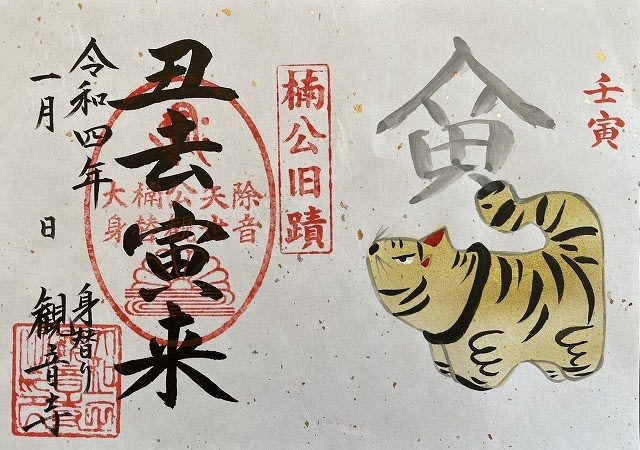 壬寅
寅
楠公旧蹟
丑去寅来
大楠公矢除
身替観世音
令和四年
一月 日
身替り
観音寺